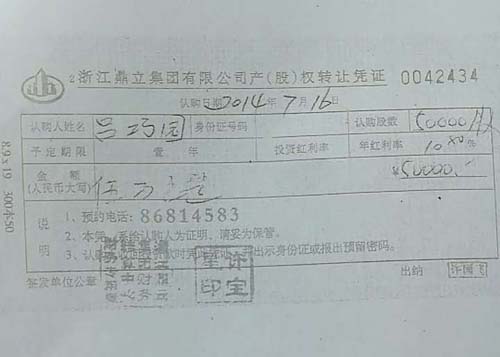 2浙江鼎立集团有限公司产(股)权转让凭证 0042434
认购日期2014年7月16日
认购人姓名 吕巧园 身份证号码 认购股数 50000
予定期限 壹年 投资红利率 年红利率 10.80%
金额(人民币大写) 伍万 ¥50000.
说明
1、预约电话:86814583
2、本凭 系给认购人为证明,请妥为保管。
3、认购 出示身份证或报出预留密码。
签发单位公章 出纳
89×19 300本50